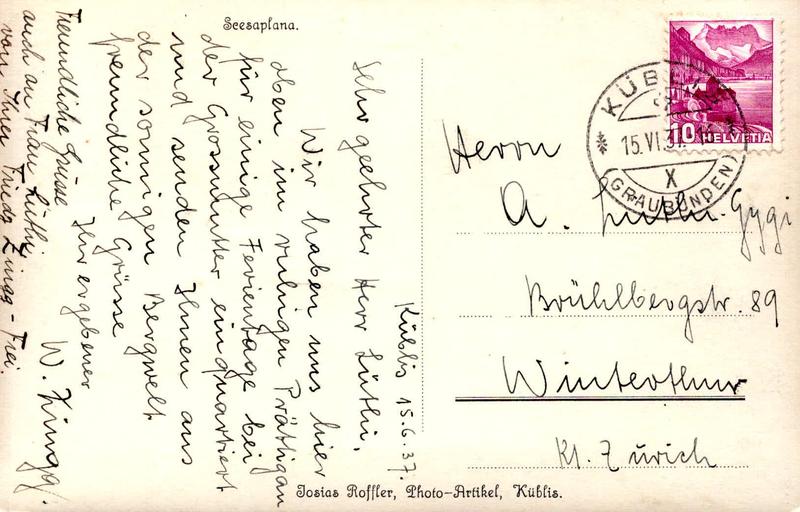 Seesaplana.
Küblis 15.6.37.
Sehr geehrter Herr Lüthi,
Wir haben uns hier
oben im ruhigen Prättigau
für einige Ferientage bei
der Grossmutter einquartiert
und senden Ihnen aus
der sonnigen Bergwelt
freundliche Grüsse
Ihr ergebener
W. Zingg.
Freundliche Grüsse
auch an Frau Lüthi
von Ihrer Zingg-Frei.
KÜBLIS
15.VI.37
X
(GRAUBÜNDEN)
10 HELVETIA
Herrn
A. Lüthi-Gygi
Brühlbergstr. 89
Winterthur
Kt. Zürich
Josias Roffler, Photo-Artikel, Küblis.